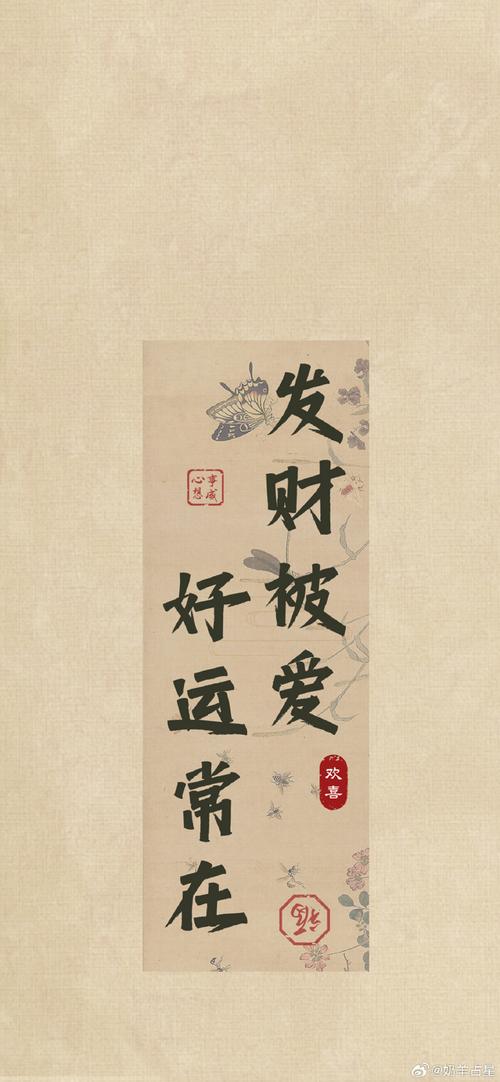 发财被爱
好运常在
心想
事成
欢喜
福
@奶羊占星